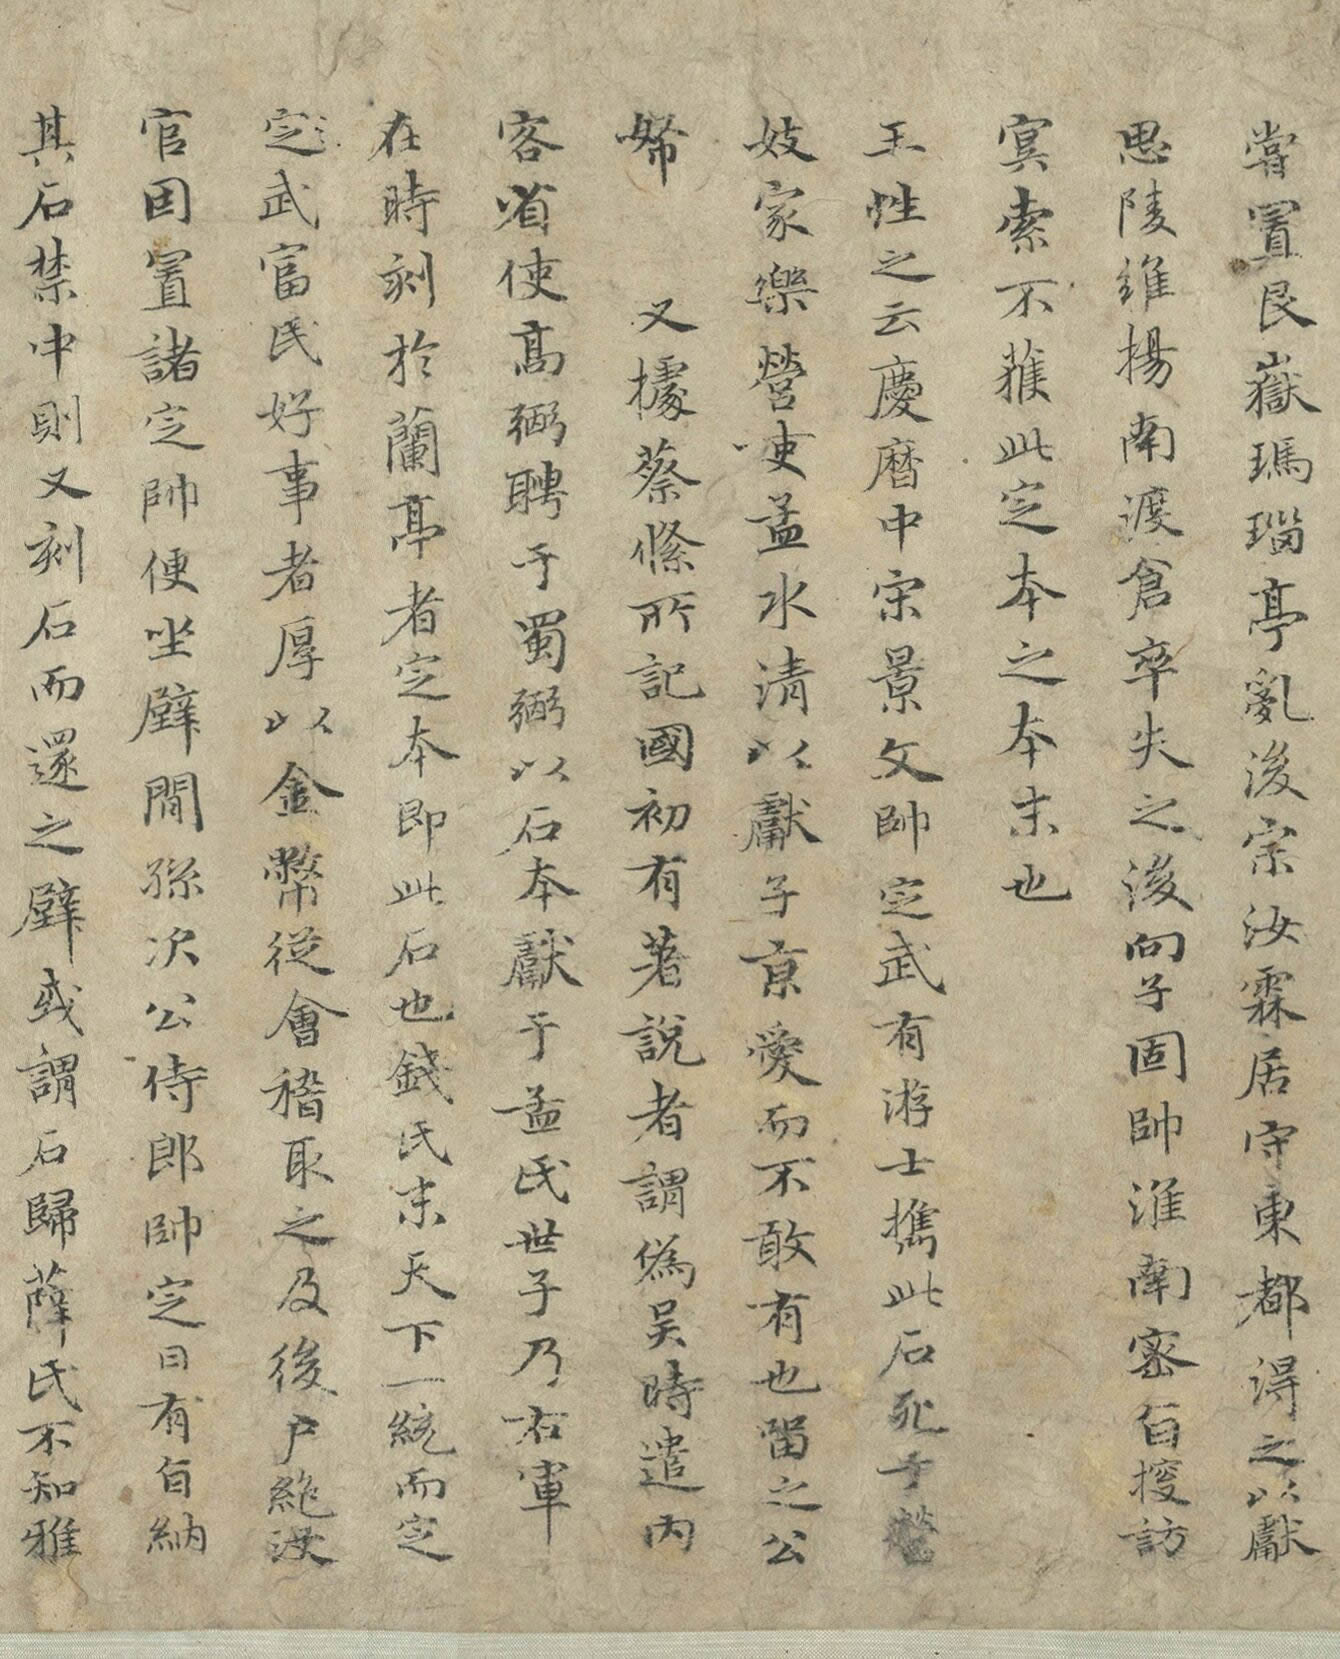 嘗置艮嶽瑪瑙亭亂後宗汝霖居守東都得之以獻
思陵維揚南渡倉卒失之後向子固帥淮南密旨搜訪
冥索不獲此定本之本末也
王性之云慶曆中宋景文帥定武有游士攜此石死于營
妓家樂營吏孟水清以獻子京愛而不敢有也留之公
帑　又據蔡絛所記國初有著說者謂偽吳時遣內
客省使高弼聘于蜀弼以石本獻于孟氏世子乃右軍
在時刻於蘭亭者定本即此石也錢氏末天下一統而定
定武富民好事者厚以金幣從會稽取之及後户絶沒
官因置諸定帥便坐壁間孫次公侍郎帥定日有旨納
其石禁中則又刻石而還之壁或謂石歸薛氏不知雅